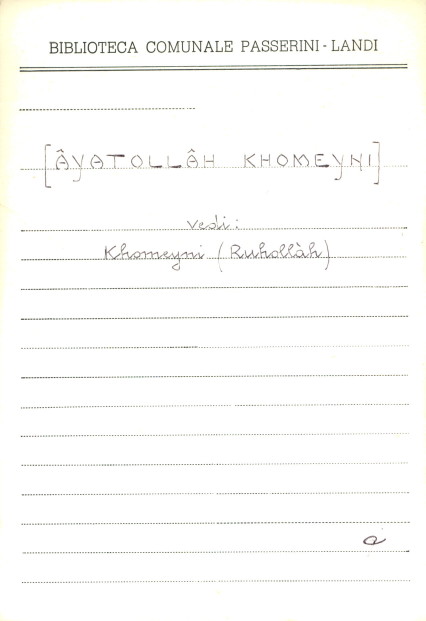 BIBLIOTECA COMUNALE PASSERINI - LANDI
[ÂYATOLLÂH KHOMEYNI]
vedi:
Khomeyni (Ruhollâh)
a